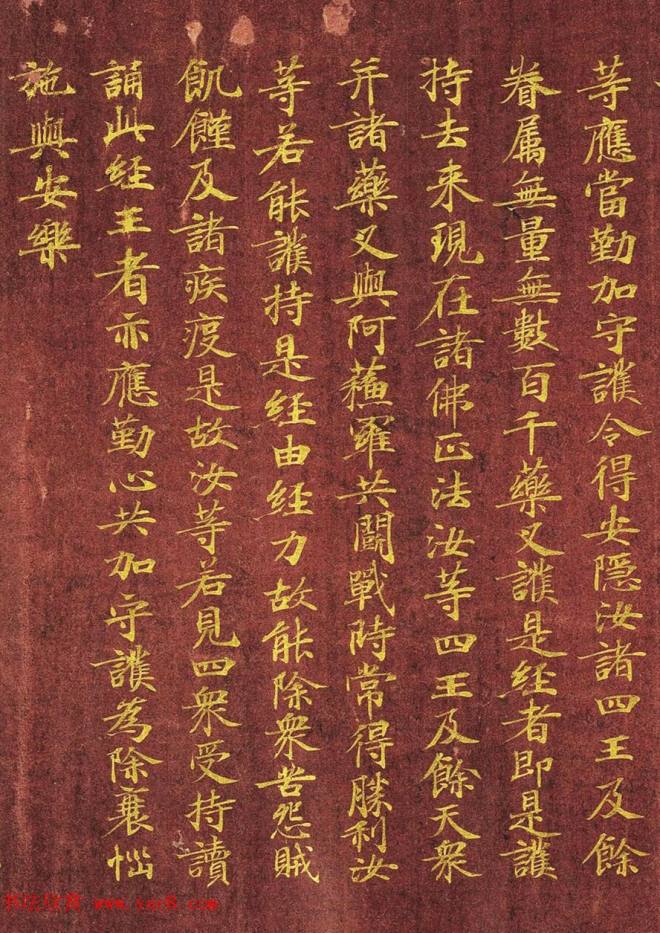 等應當勤加守護令得安隱汝諸四王及餘
眷属無量無數百千藥叉護是経者即是護
持去来現在諸佛正法汝等四王及餘天衆
并諸藥叉與阿蘓羅共鬪戰時常得勝利汝
等若能護持是経由経力故能除衆苦怨賊
飢饉及諸疾疫是故汝等若見四衆受持讀
誦此経王者亦應勤心共加守護為除襄惱
施與安樂
书法欣赏 www.